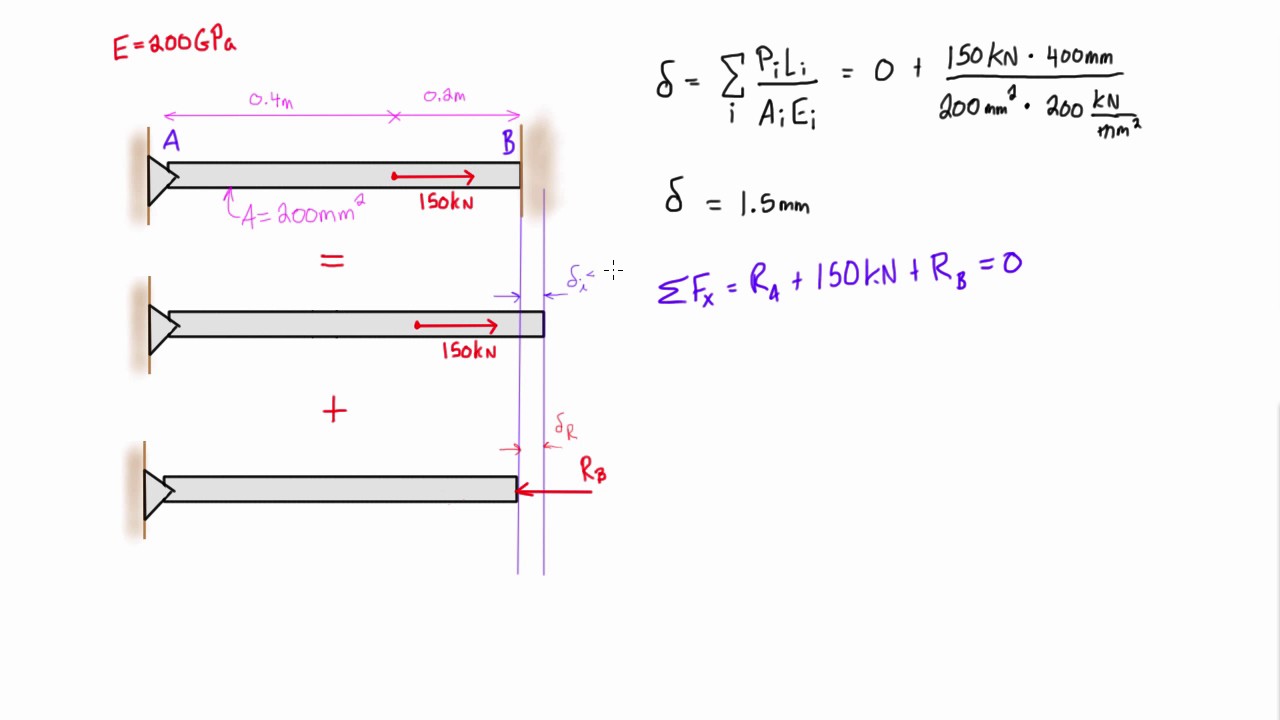 E=200GPa
0.4m 0.2m
A B
150kN
A=200mm²
=
δᵢ
150kN
+
δ_R
R_B
δ = Σ_i PᵢLᵢ/AᵢEᵢ = 0 + 150kN · 400mm / 200mm² · 200 kN/mm²
δ = 1.5mm
ΣFₓ = R_A + 150kN + R_B = 0